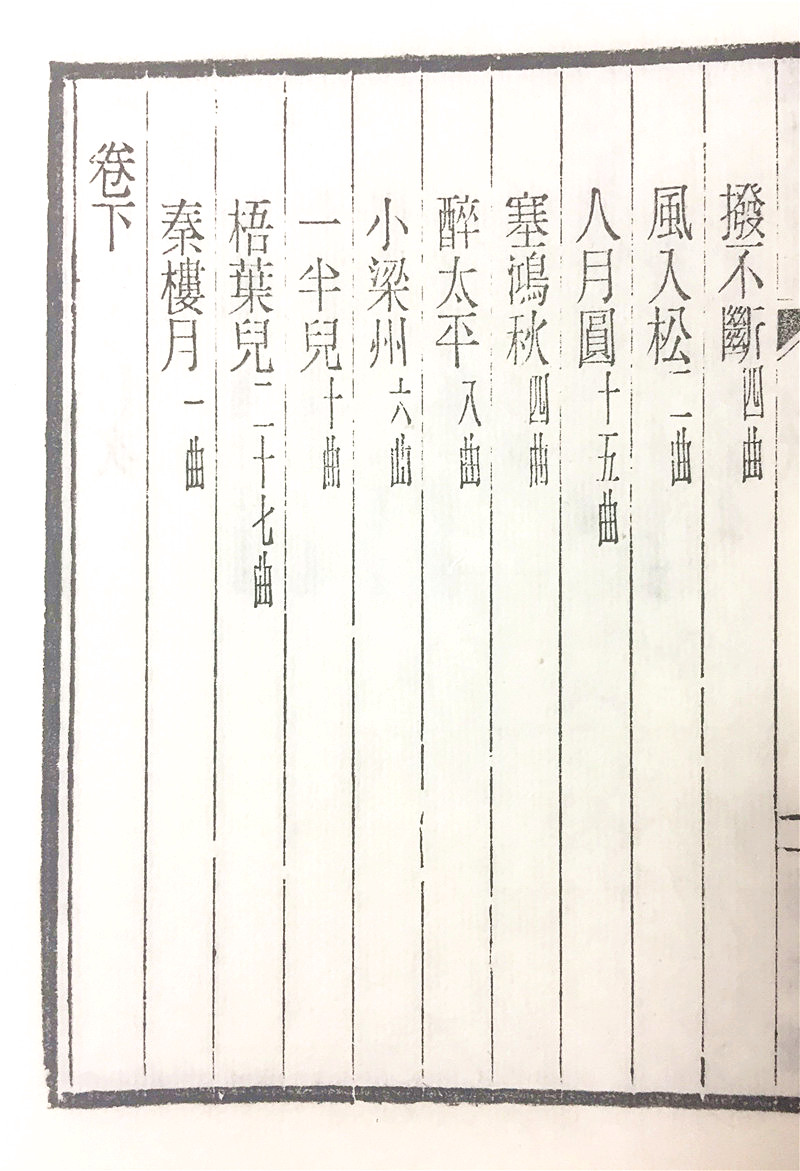 撥不斷四曲
風入松二曲
人月圓十五曲
塞鴻秋四曲
醉太平八曲
小梁州六曲
一半兒十曲
梧葉兒二十七曲
秦樓月一曲
卷下